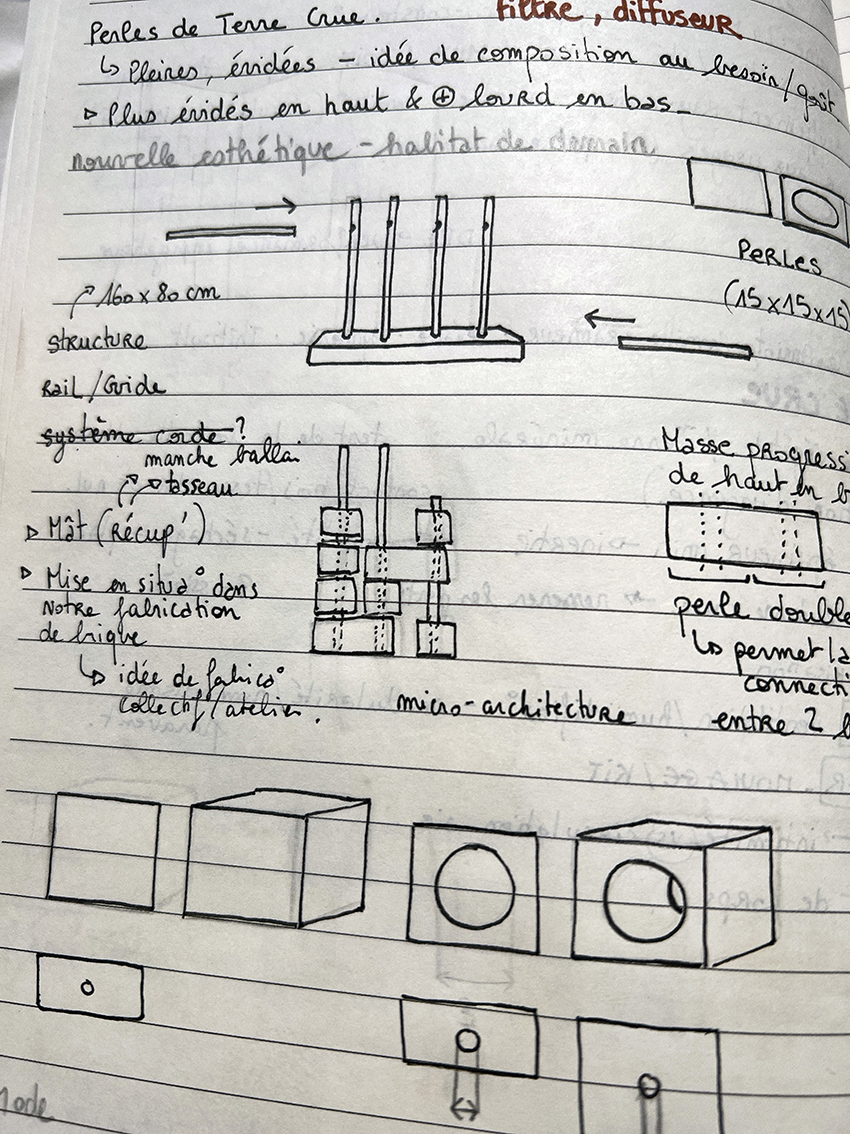 Perles de Terre Crue. filtre, diffuseur
↳ Pleines, évidées – idée de composition au besoin/goût
▹ Plus évidés en haut & ⊕ lourd en bas –
nouvelle esthétique – habitat de demain
PERLES
(15x15x15)
160 x 80 cm
structure
Rail/Guide
système corde ?
manche balla
tasseau
▹ Mât (Récup')
▹ Mise en situa° dans
notre fabrication
de brique
↳ idée de fabric°
collectif/atelier.
Masse progressi
de haut en b
perle double
↳ permet la
connecti
entre 2
micro-architecture